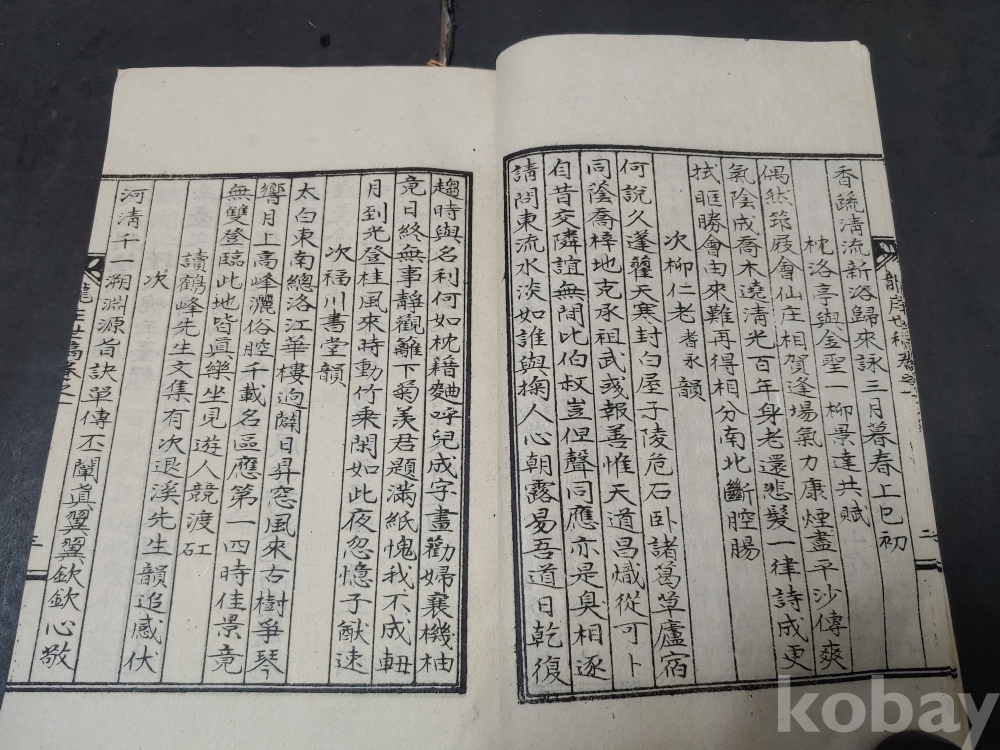 香蔬淸流新浴歸來詠三月暮春上巳初
枕洛亭與金聖一柳景達共賦
偶然筇屐會仙庄相賀逢場氣力康煙盡平沙傳爽
氣陰成喬木遶淸光百年身老還悲髮一律詩成更
拭眶勝會由來難再得相分南北斷腔腸
次柳仁老耆永韻
何說久蓬藋天寒封白屋子陵危石卧諸葛草廬宿
同蔭喬梓地克承祖武彧報善惟天道昌熾從可卜
自昔交隣誼無間比伯叔豈俚聲同應亦是臭相逐
請問東流水淡如誰與掬人心朝露易吾道日乾復
趨時與名利何如枕藉麯呼兒成字畫勸婦襄機柚
竟日終無事靜觀籬下菊羡君題滿紙愧我不成軸
月到光登桂風來時動竹乘閑如此夜忽憶子猷速
次福川書堂韻
太白東南總洛江華樓逈闢日昇窓風來古樹爭琴
響月上高峰灑俗腔千載名區應第一四時佳景竟
無雙登臨此地皆眞樂坐見遊人競渡矼
讀鶴峰先生文集有次退溪先生韻追感伏
次
河淸千一溯淵源旨訣單傳丕闡眞翼翼欽欽心敬
二
三
kobay